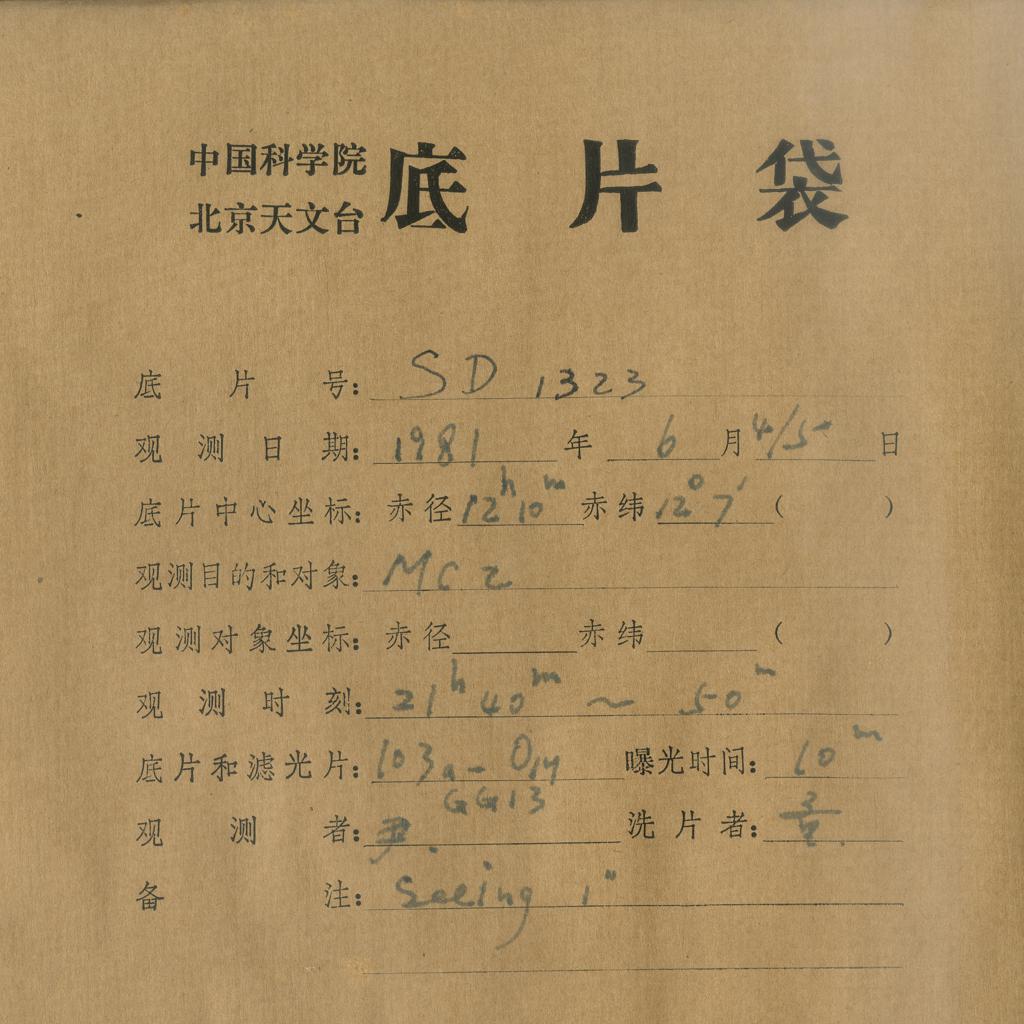 中国科学院
北京天文台
底片袋
底片号: SD 1323
观测日期: 1981年 6月4/5日
底片中心坐标: 赤径12h10m赤纬12°7′( )
观测目的和对象: MCZ
观测对象坐标: 赤径 赤纬 ( )
观测时刻: 21h40m ~ 50m
底片和滤光片: 103a-O 曝光时间: 10m
GG13
观测者: 尹. 洗片者:
备注: Seeing 1″